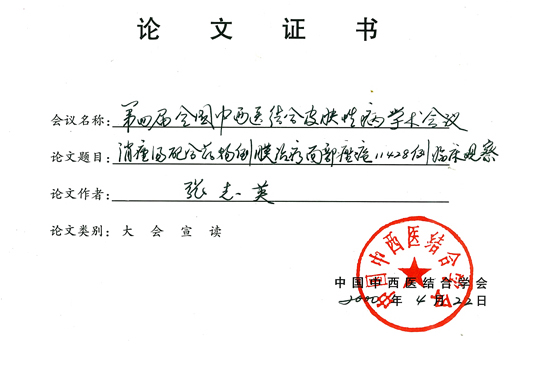 论文证书
会议名称：第四届全国中西医结合皮肤性病学术会议
论文题目：消痤汤配合药物倒膜治疗面部痤疮11428例临床观察
论文作者：张志英
论文类别：大会宣读
中国中西医结合学会
中国中西医结合学会
2000年4月22日